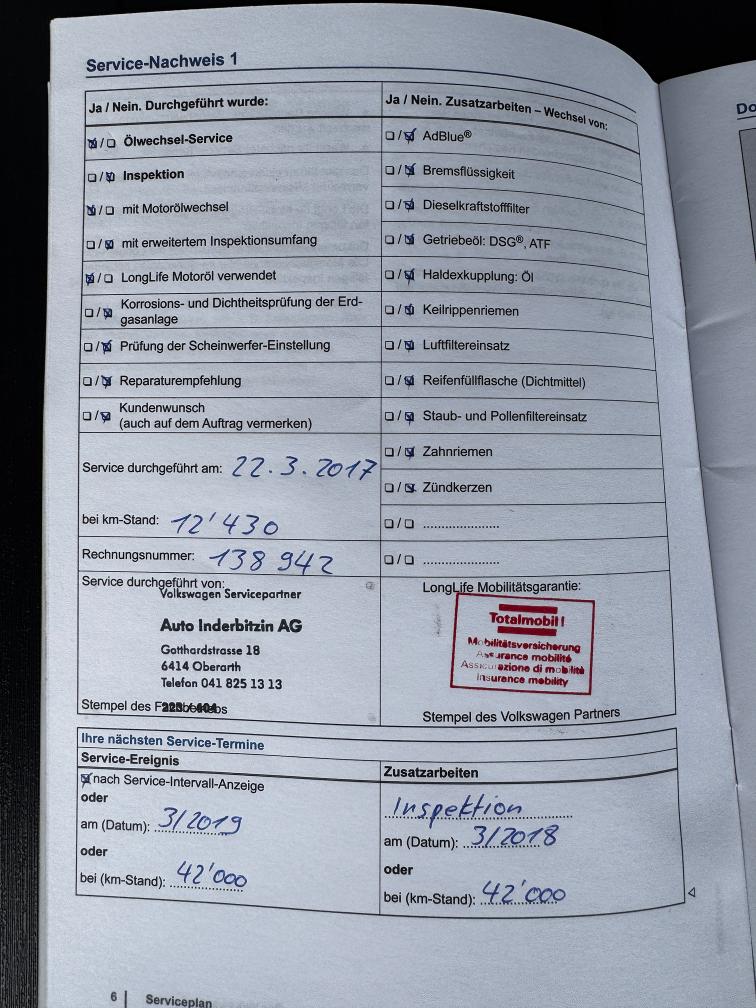 Service-Nachweis 1
Ja / Nein. Durchgeführt wurde:
☒ / ☐ Ölwechsel-Service
☐ / ☒ Inspektion
☒ / ☐ mit Motorölwechsel
☐ / ☒ mit erweitertem Inspektionsumfang
☒ / ☐ LongLife Motoröl verwendet
☐ / ☒ Korrosions- und Dichtheitsprüfung der Erd-
gasanlage
☐ / ☒ Prüfung der Scheinwerfer-Einstellung
☐ / ☒ Reparaturempfehlung
☐ / ☒ Kundenwunsch
(auch auf dem Auftrag vermerken)
Service durchgeführt am: 22.3.2017
bei km-Stand: 12'430
Rechnungsnummer: 138 942
Service durchgeführt von:
Volkswagen Servicepartner
Auto Inderbitzin AG
Gotthardstrasse 18
6414 Oberarth
Telefon 041 825 13 13
Stempel des
Ja / Nein. Zusatzarbeiten – Wechsel von:
☐ / ☒ AdBlue®
☐ / ☒ Bremsflüssigkeit
☐ / ☒ Dieselkraftstofffilter
☐ / ☒ Getriebeöl: DSG®, ATF
☐ / ☒ Haldexkupplung: Öl
☐ / ☒ Keilrippenriemen
☐ / ☒ Luftfiltereinsatz
☐ / ☒ Reifenfüllflasche (Dichtmittel)
☐ / ☒ Staub- und Pollenfiltereinsatz
☐ / ☒ Zahnriemen
☐ / ☒ Zündkerzen
☐ / ☐ .....................
☐ / ☐ .....................
LongLife Mobilitätsgarantie:
Totalmobil!
Mobilitätsversicherung
Assurance mobilité
Assicurazione di mobilità
Insurance mobility
Stempel des Volkswagen Partners
Ihre nächsten Service-Termine
Service-Ereignis
☒ nach Service-Intervall-Anzeige
oder
am (Datum): 3/2019
oder
bei (km-Stand): 42'000
Zusatzarbeiten
Inspektion
am (Datum): 3/2018
oder
bei (km-Stand): 42'000
6 | Serviceplan
Do